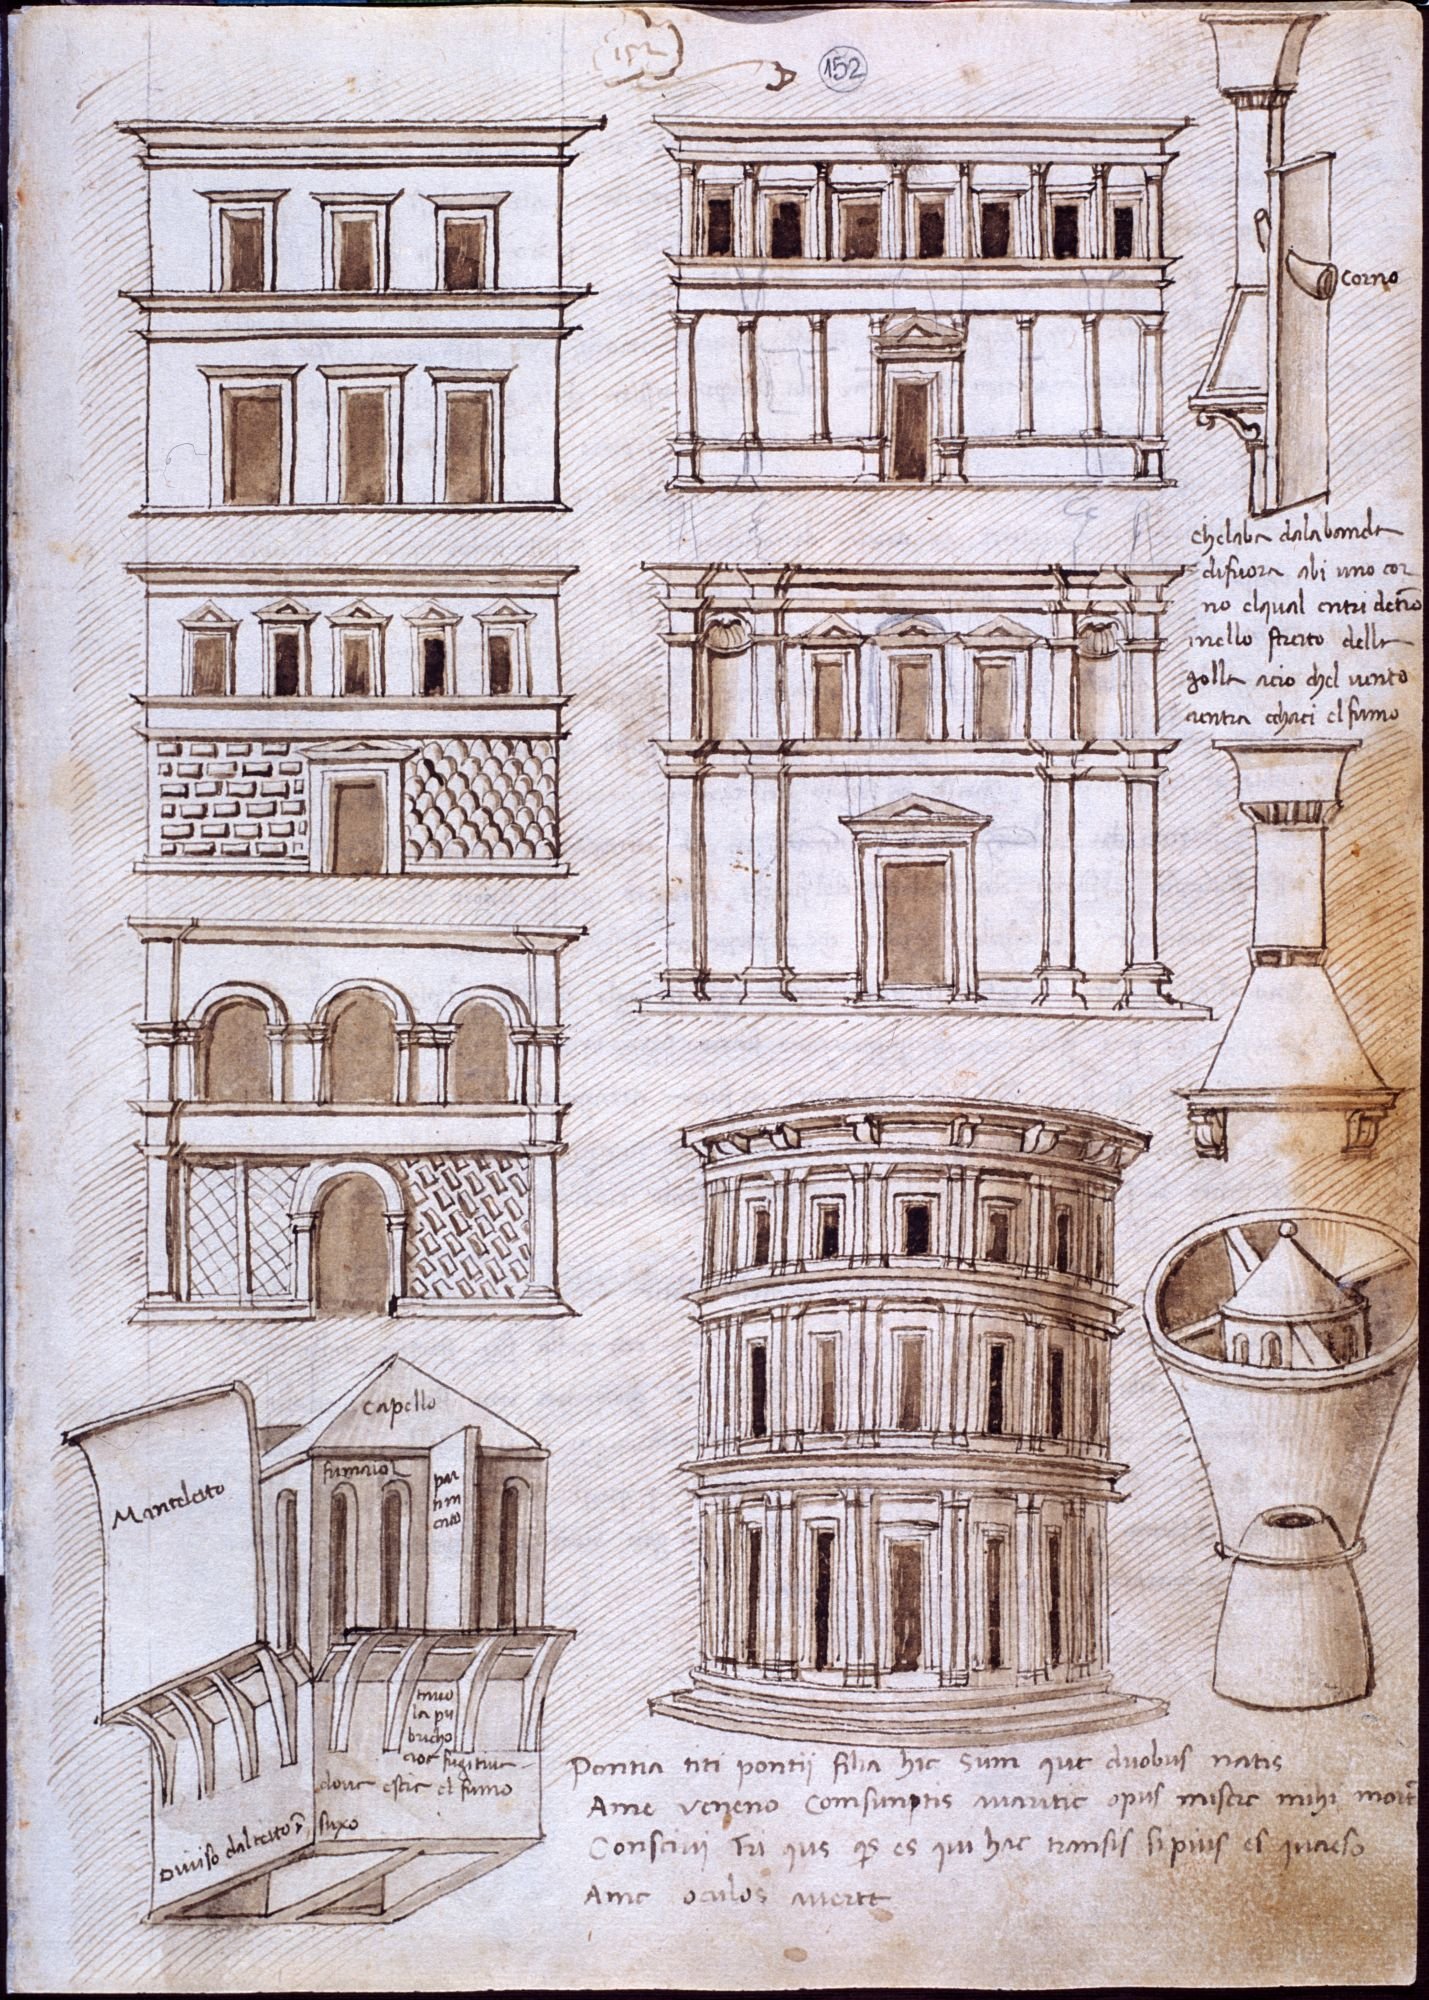 152
152
corno
chelabe dalabanda
difuora abi uno cor
no elqual entri detro
nello streto della
golla acio chel vento
aentra chaci el fumo
Capello
fumaiol
par
tim
ento
Manteleto
tauo
la pu
fugitiue
doue escie el fumo
Diuiso dal teto
Pontia titi pontij filia hic Sum que duobus natis
Ame veneno Comsumptis auaritie opus misere mihi mort
Conscivi Tu qis es qui hac transis sipius es quaeso
Ame oculos auerte